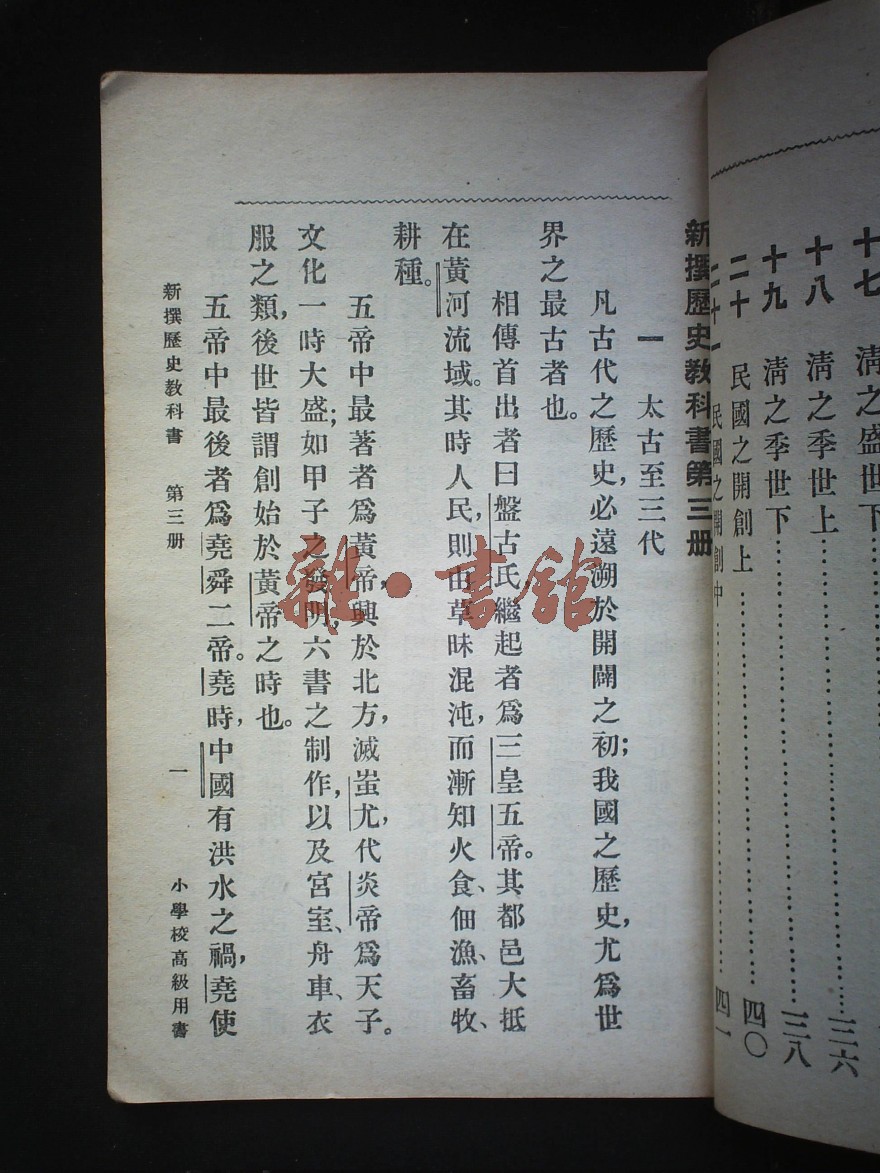 十七　淸之盛世下
十八　淸之季世上……三六
十九　淸之季世下……三八
二十　民國之開創上……四〇
二十一　民國之開創中……四一
新撰歷史敎科書第三册
一　太古至三代
凡古代之歷史，必遠溯於開闢之初；我國之歷史，尤爲世
界之最古者也。
相傳首出者曰盤古氏，繼起者爲三皇五帝。其都邑大抵
在黃河流域。其時人民，則由草昧混沌，而漸知火食、佃漁、畜牧、
耕種。
五帝中最著者爲黃帝，興於北方，滅蚩尤，代炎帝爲天子。
文化一時大盛；如甲子之發明，六書之制作，以及宮室、舟車、衣
服之類，後世皆謂創始於黃帝之時也。
五帝中最後者爲堯舜二帝。堯時，中國有洪水之禍，堯使
新撰歷史敎科書　第三册　一　小學校高級用書
雜·書館